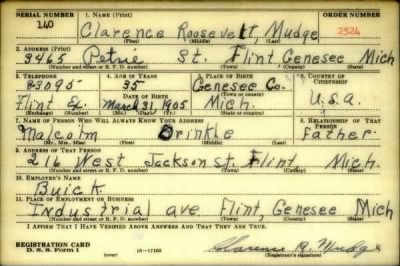 SERIAL NUMBER 1. NAME (Print) ORDER NUMBER
140 Clarence Roosevelt, Mudge 2524
(First) (Middle) (Last)
2. ADDRESS (Print)
3465 Petrie St. Flint Genesee Mich
(Number and street or R. F. D. number) (Town) (County) (State)
3. TELEPHONE 4. AGE IN YEARS 5. PLACE OF BIRTH 6. COUNTRY OF CITIZENSHIP
83095 35 Genesee Co.
DATE OF BIRTH (Town or county)
Flint Ex. March 31, 1905 Mich. U.S.A.
(Exchange) (Number) (Mo.) (Day) (Yr.) (State or country)
7. NAME OF PERSON WHO WILL ALWAYS KNOW YOUR ADDRESS 8. RELATIONSHIP OF THAT PERSON
Malcolm Brinkle Father
(Mr., Mrs., Miss) (First) (Middle) (Last)
9. ADDRESS OF THAT PERSON
216 West Jackson St. Flint, Mich.
(Number and street or R. F. D. number) (Town) (County) (State)
10. EMPLOYER'S NAME
Buick
11. PLACE OF EMPLOYMENT OR BUSINESS
Industrial ave Flint, Genesee Mich
(Number and street or R. F. D. number) (Town) (County) (State)
I AFFIRM THAT I HAVE VERIFIED ABOVE ANSWERS AND THAT THEY ARE TRUE.
REGISTRATION CARD
D. S. S. Form 1 (over) 16-17105 Clarence R. Mudge
(Registrant's signature)